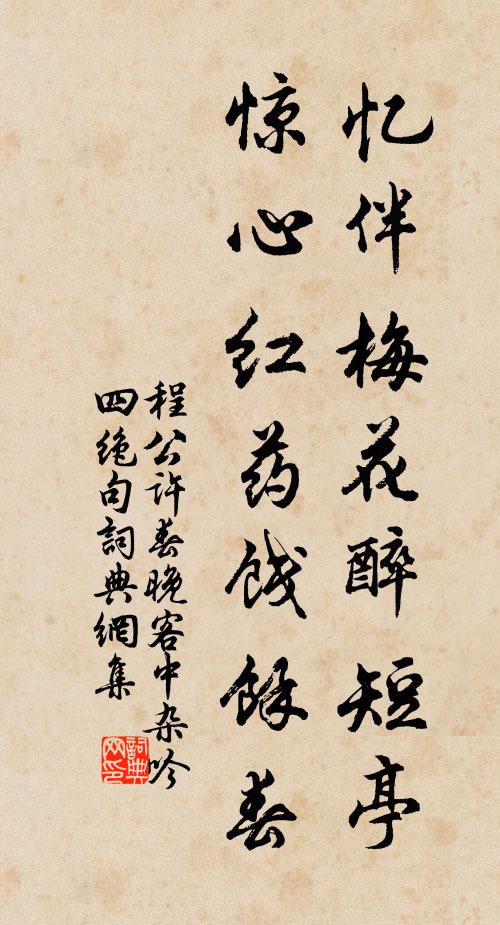 忆伴梅花醉短亭
惊心红药饯馀春
程公许春晚客中杂吟
四绝句词典網集
詞典網印